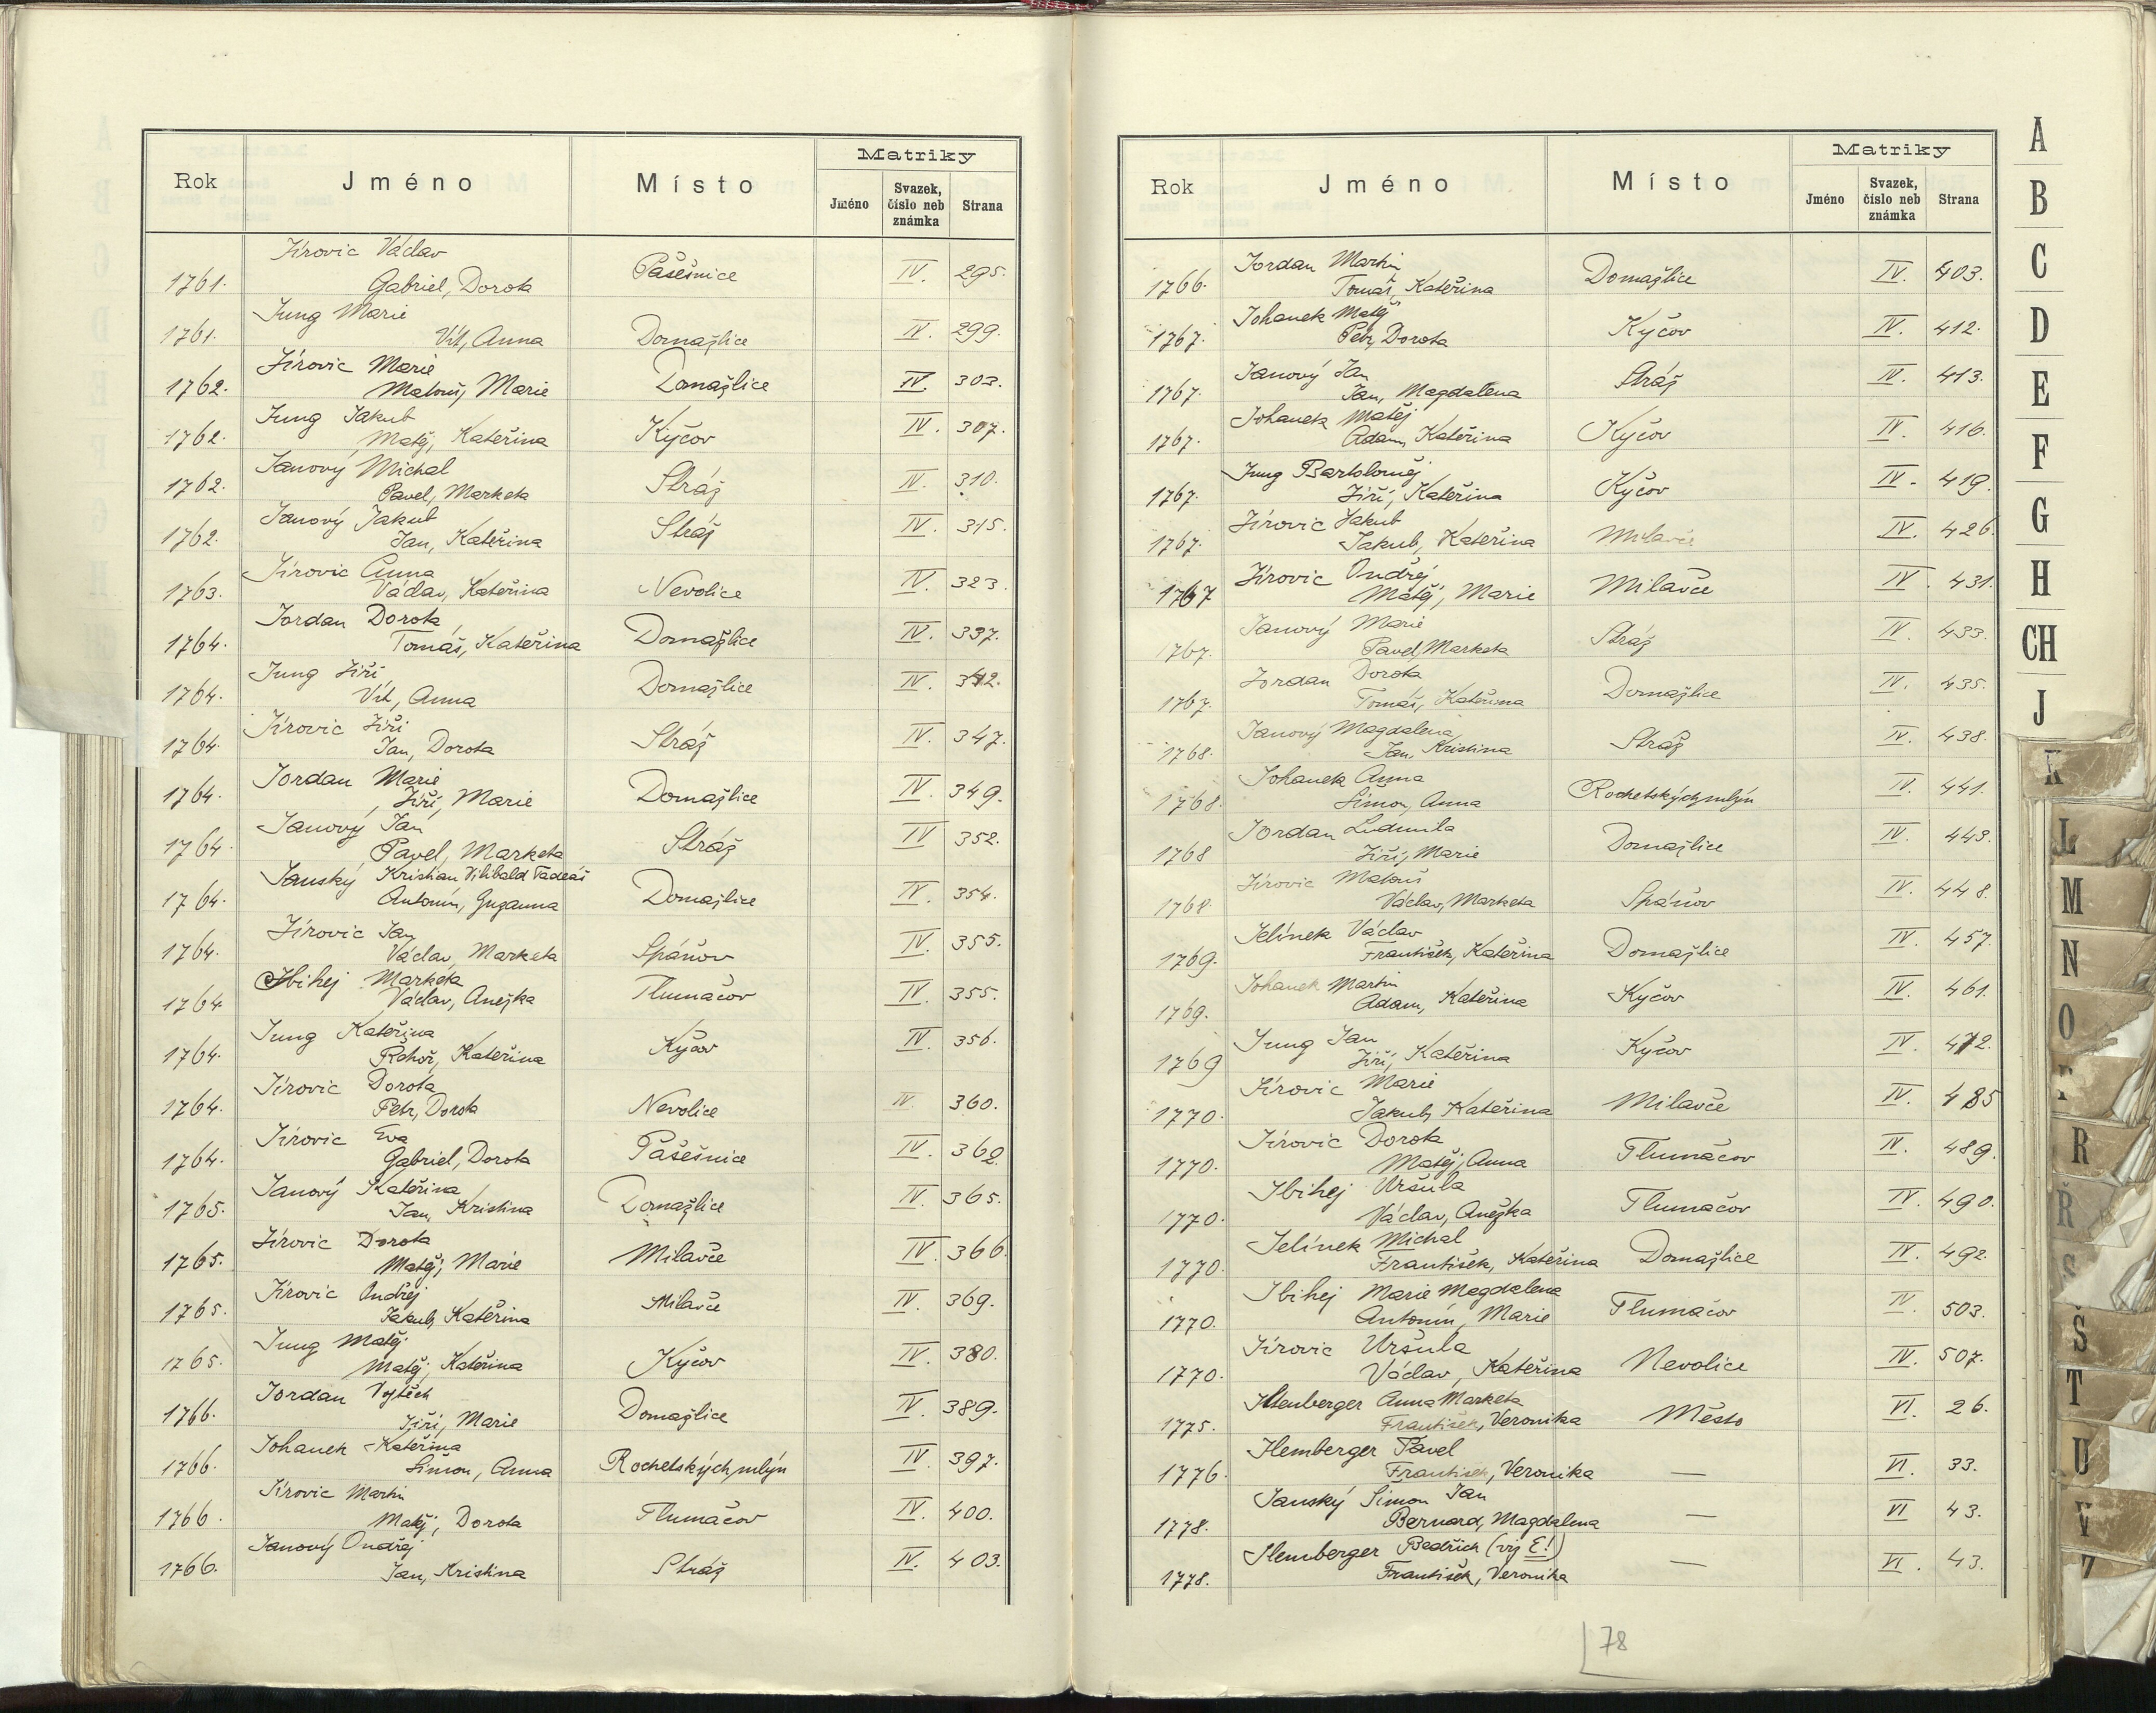 Matriky
Rok Jméno Místo Jméno Svazek, číslo neb známka Strana
Jírovic Václav
1761. Gabriel, Dorota Pašešnice IV. 295.
Jung Marie
1761. Vít, Anna Domažlice IV. 299.
Jírovic Marie
1762. Matouš, Marie Domažlice IV. 303.
Jung Jakub
1762. Matěj, Kateřina Kyčov IV. 307.
Janový Michal
1762. Pavel, Marketa Stráž IV. 310.
Janový Jakub
1762. Jan, Kateřina Stráž IV. 315.
Jírovic Anna
1763. Václav, Kateřina Nevolice IV. 323.
Jordan Dorota
1764. Tomáš, Kateřina Domažlice IV. 337.
Jung Jiří
1764. Vít, Anna Domažlice IV. 342.
Jírovic Jiří
1764. Jan, Dorota Stráž IV. 347.
Jordan Marie
1764. Jiří, Marie Domažlice IV. 349.
Janový Jan
1764. Pavel, Marketa Stráž IV 352.
Janský Kristian Vilibald Tadeáš
1764. Antonín, Zuzanna Domažlice IV. 354.
Jírovic Jan
1764. Václav, Marketa Spáňov IV. 355.
Jbihej Markéta
1764 Václav, Anežka Tlumačov IV. 355.
Jung Kateřina
1764. Řehoř, Kateřina Kyčov IV. 356.
Jírovic Dorota
1764. Petr, Dorota Nevolice IV 360.
Jírovic Eva
1764. Gabriel, Dorota Pašešnice IV. 362.
Janový Kateřina
1765. Jan, Kristina Domažlice IV. 365.
Jírovic Dorota
1765. Matěj, Marie Milavče IV. 366.
Jírovic Ondřej
1765. Jakub, Kateřina Milavče IV. 369.
Jung Matěj
1765. Matěj, Kateřina Kyčov IV. 380.
Jordan Vojtěch
1766. Jiří, Marie Domažlice IV. 389.
Johanek Kateřina
1766. Šimon, Anna Rochetskýchmlýn IV. 397.
Jírovic Martin
1766. Matěj, Dorota Tlumačov IV. 400.
Janový Ondřej
1766. Jan, Kristina Stráž IV. 403.
Matriky
Rok Jméno Místo Jméno Svazek, číslo neb známka Strana
Jordan Martin
1766. Tomáš, Kateřina Domažlice IV. 403.
Johanek Matěj
1767. Petr, Dorota Kyčov IV. 412.
Janový Jan
1767. Jan, Magdalena Stráž IV. 413.
Johanek Matěj
1767. Adam, Kateřina Kyčov IV. 416.
Jung Bartoloměj
1767. Jiří, Kateřina Kyčov IV. 419.
Jírovic Jakub
1767. Jakub, Kateřina Milavče IV. 426.
Jírovic Ondřej
1767 Matěj, Marie Milavče IV. 431.
Janový Marie
1767. Pavel, Marketa Stráž IV. 433.
Jordan Dorota
1767. Tomáš, Kateřina Domažlice IV. 435.
Janový Magdalena
1768. Jan, Kristina Stráž IV. 438.
Johanek Anna
1768. Šimon, Anna Rochetskýchmlýn IV. 441.
Jordan Ludmila
1768 Jiří, Marie Domažlice IV. 443.
Jírovic Matouš
1768. Václav, Marketa Spáňov IV. 448.
Jelínek Václav
1769. František, Kateřina Domažlice IV. 457.
Johanek Martin
1769. Adam, Kateřina Kyčov IV. 461.
Jung Jan
1769 Jiří, Kateřina Kyčov IV. 472.
Jírovic Marie
1770. Jakub, Kateřina Milavče IV. 485
Jírovic Dorota
1770. Matěj, Anna Tlumačov IV. 489.
Jbihej Uršula
1770. Václav, Anežka Tlumačov IV. 490.
Jelínek Michal
1770. František, Kateřina Domažlice IV. 492.
Jbihej Marie Magdalena
1770. Antonín, Marie Tlumačov IV. 503.
Jírovic Uršula
1770. Václav, Kateřina Nevolice IV. 507.
Anna Marketa
1775. František, Veronika Město VI. 26.
Jlemberger Pavel
1776. František, Veronika — VI. 33.
Janský Šimon Jan
1778. Bernard, Magdalena — VI 43.
Jlemberger Bedřich (viz E!)
1778. František, Veronika — VI. 43.
78
A
B
C
D
E
F
G
H
CH
J
K
L
M
N
O
R
Ř
S
Š
T
U
V